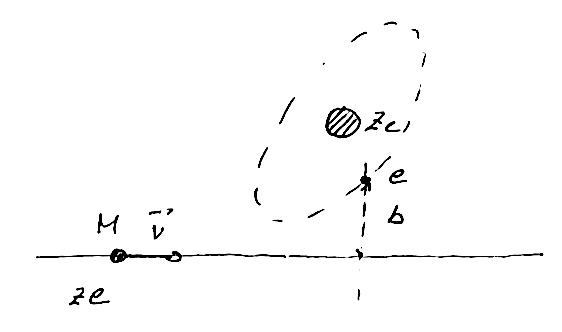 Ze
e
b
M v⃗
ze